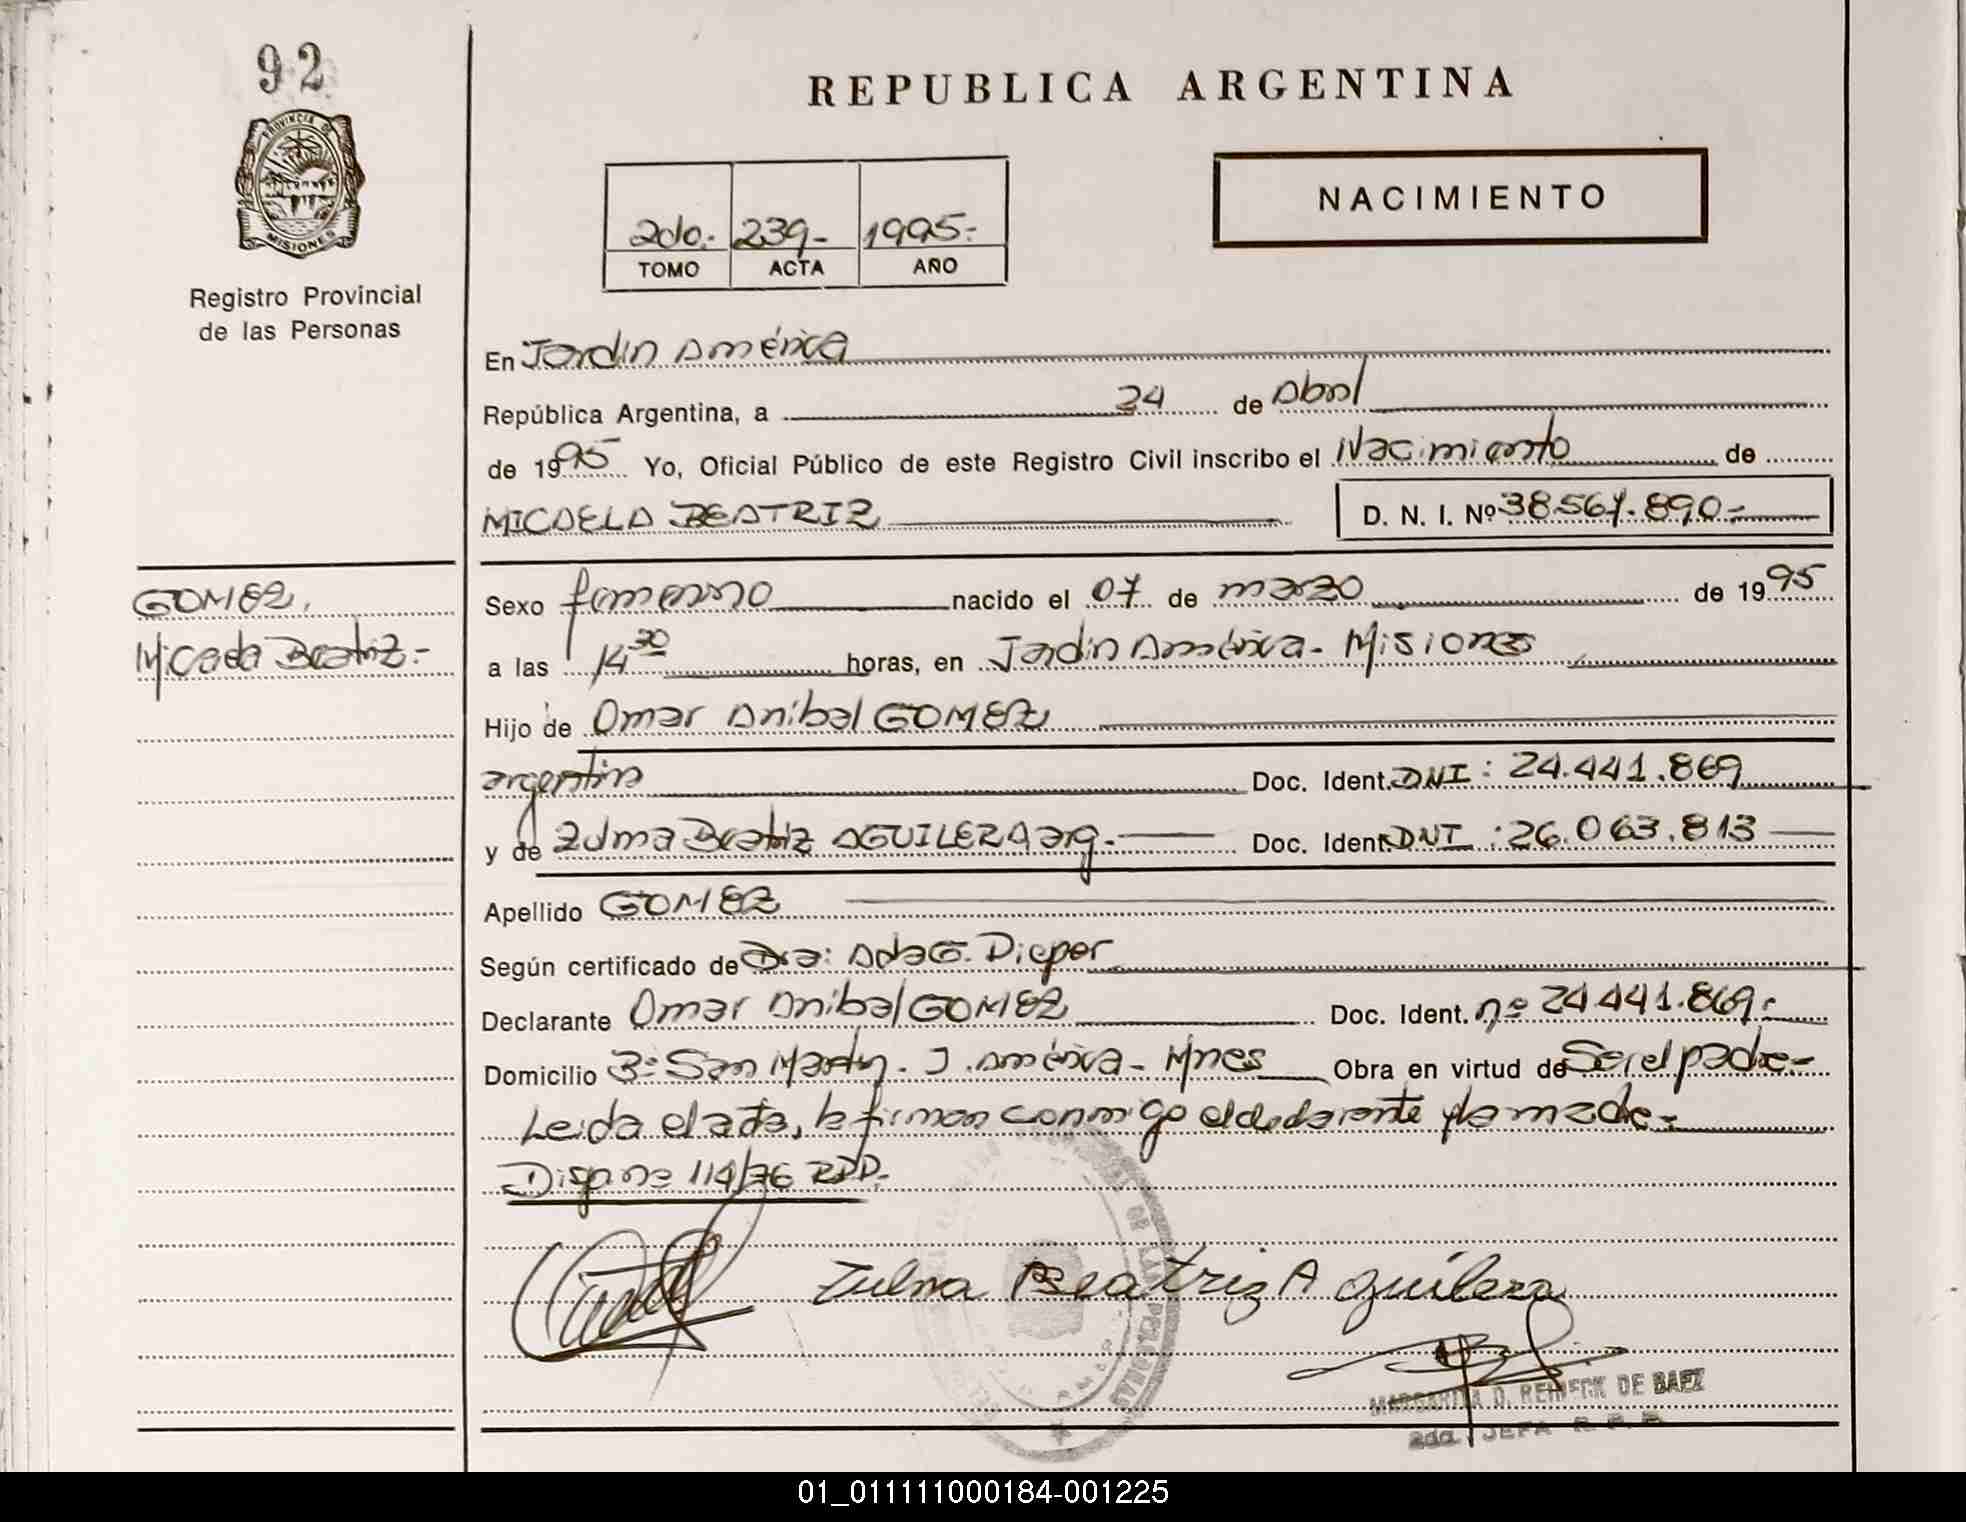 92
REPUBLICA ARGENTINA
PROVINCIA DE
MISIONES
NACIMIENTO
2do.- 239- 1995.-
TOMO ACTA AÑO
Registro Provincial
de las Personas
En Jardín América
República Argentina, a 24 de Abril
de 1995 Yo, Oficial Público de este Registro Civil inscribo el Nacimiento de
MICAELA BEATRIZ D. N. I. Nº 38.567.890.-
GOMEZ,
Micaela Beatriz.-
Sexo femenino nacido el 07 de marzo de 1995
a las 14 30 horas, en Jardín América - Misiones
Hijo de Omar Anibal GOMEZ
argentina Doc. Ident. DNI : 24.441.869
y de Zulma Beatriz AGUILERA arg.- Doc. Ident. DNI : 26.063.813
Apellido GOMEZ
Según certificado de Dra: Ada G. Dieper
Declarante Omar Anibal GOMEZ Doc. Ident. nº 24.441.869.-
Domicilio Bº San Martín. J. América - Mnes Obra en virtud de Ser el padre.-
Leida el acta, la firman conmigo el declarante y la madre.-
114/76 RPP.-
Zulma Beatriz Aguilera
MARGARITA D. REINECK DE BAEZ
2da. JEFA R. P. P.
01_011111000184-001225